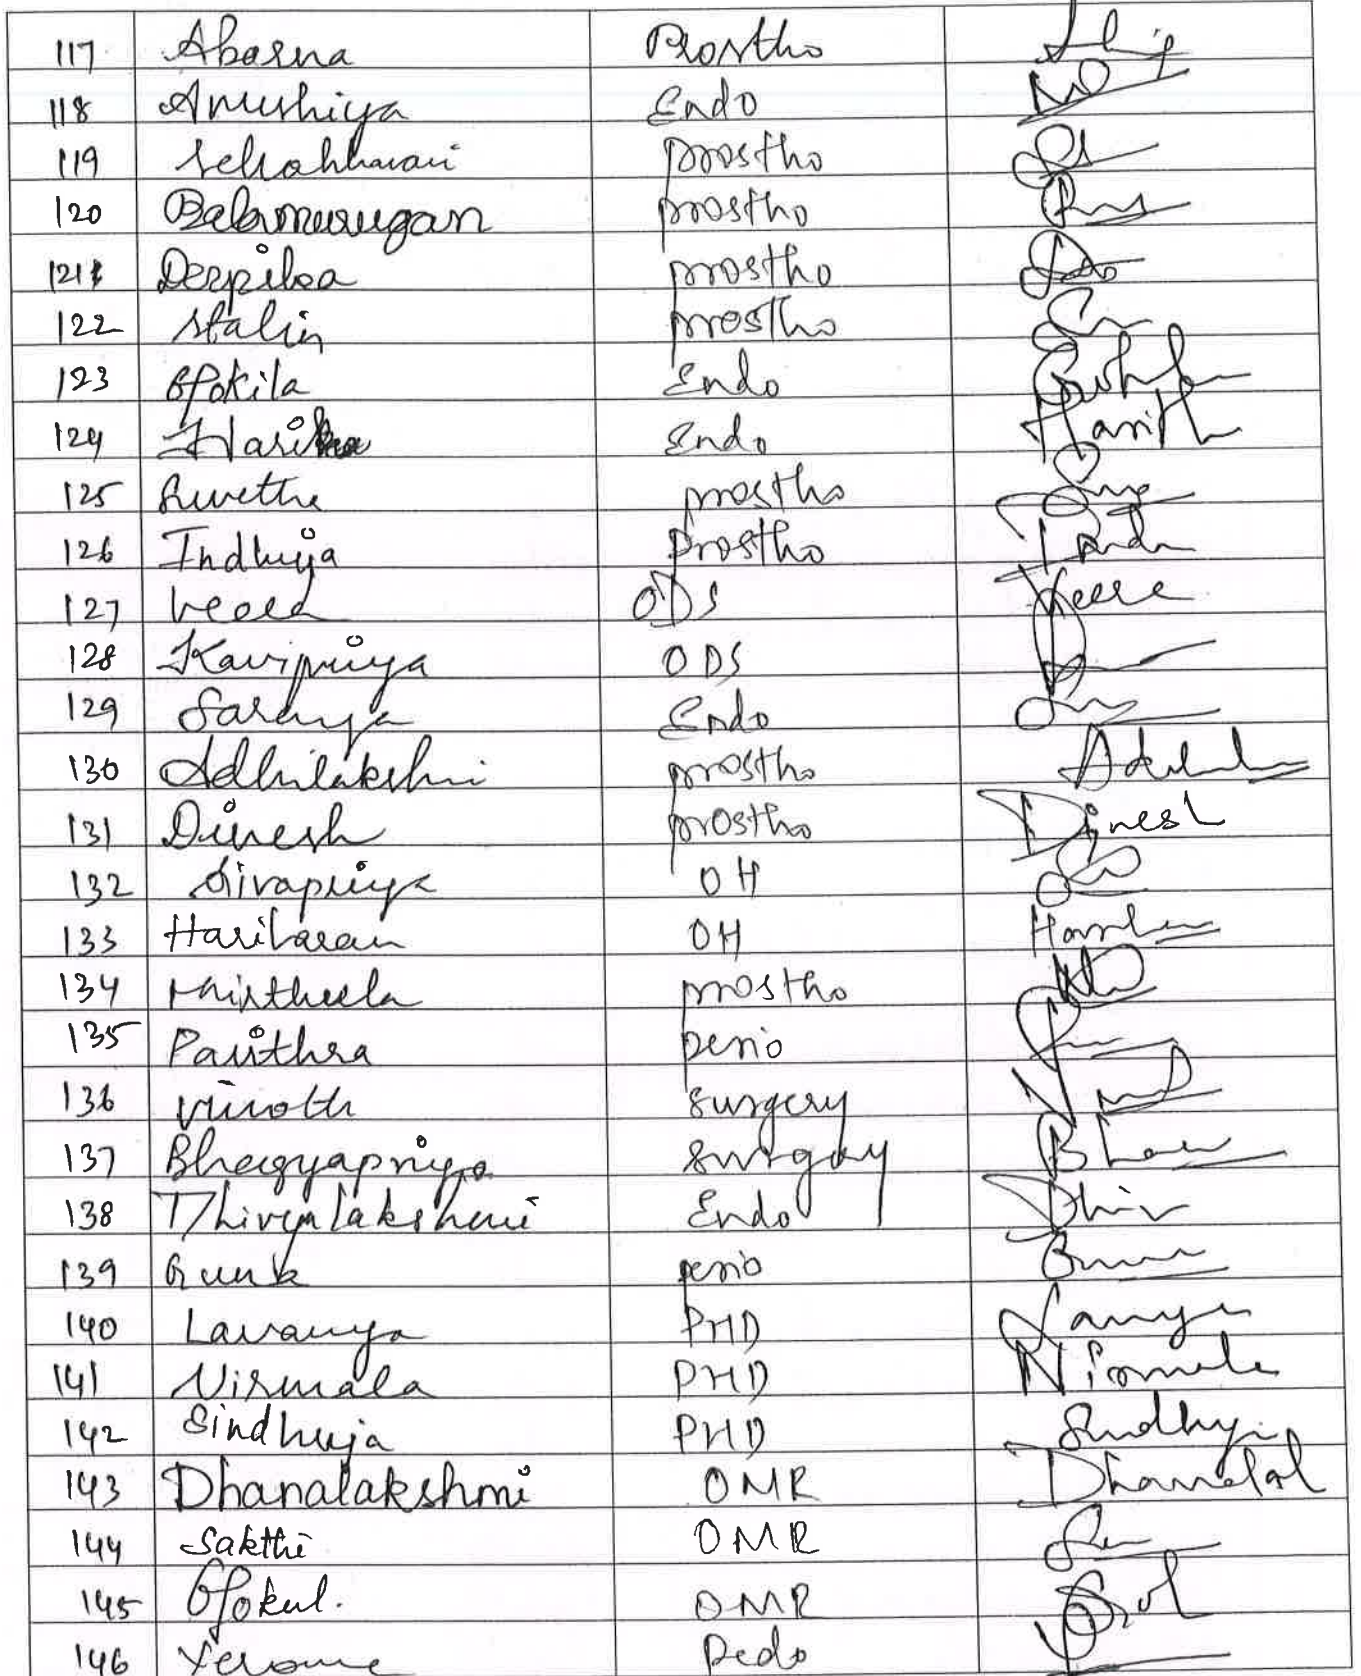 117 Abarna Prostho
118 Anushiya Endo
119 prostho
120 Balamurugan prostho
121 prostho
122 Stalin prostho
123 Gokila Endo
124 Harika Endo Harith
125 Suvetha prostho
126 Indhuja Prostho Indu
127 Veera ODS Veera
128 Kavipriya ODS
129 Saranya Endo
130 Adhilakshmi prostho
131 Dinesh prostho Dinesh
132 Sivapriya OH
133 Hariharan OH
134 prostho
135 Pavithra perio
136 Vinoth surgery
137 Bhagyapriya surgery
138 Thivyalakshmi Endo Dhiv
139 perio
140 Lavanya PHD
141 Nirmala PHD Nirmala
142 Sindhuja PHD Sindhuja
143 Dhanalakshmi OMR Dhanalal
144 Sakthi OMR
145 Gokul. OMR
146 Pedo